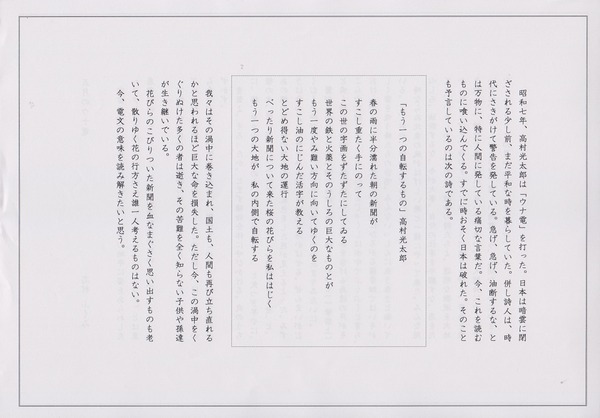 昭和七年、高村光太郎は「ウナ電」を打った。日本は暗雲に閉
ざされる少し前、まだ平和な時を暮らしていた。併し詩人は、時
代にさきがけて警告を発している。急げ、急げ、油断するな、と
は万物に、特に人間に発している痛切な言葉だ。今、これを読む
ものに喰い込んでくる。すでに時おそく日本は破れた。そのこと
も予言しているのは次の詩である。
「もう一つの自転するもの」高村光太郎
春の雨に半分濡れた朝の新聞が
すこし重たく手にのって
この世の字画をずたずたにしてゐる
世界の鉄と火薬とそのうしろの巨大なものとが
もう一度やみ難い方向に向いてゆくのを
すこし油のにじんだ活字が教へる
とどめ得ない大地の運行
べったり新聞について来た桜の花びらを私ははじく
もう一つの大地が 私の内側で自転する
我々はその渦中に巻き込まれ、国土も、人間も再び立ち直れる
かと思われるほど巨大な命を損失した。ただし今、この渦中をく
ぐりぬけた多くの者は逝き、その苦難を全く知らない子供や孫達
が生き継いでいる。
花びらのこびりついた新聞を血なまぐさく思い出すものも老
いて、散りゆく花の行方さえ誰一人考えるものはない。
今、電文の意味を読み解きたいと思う。